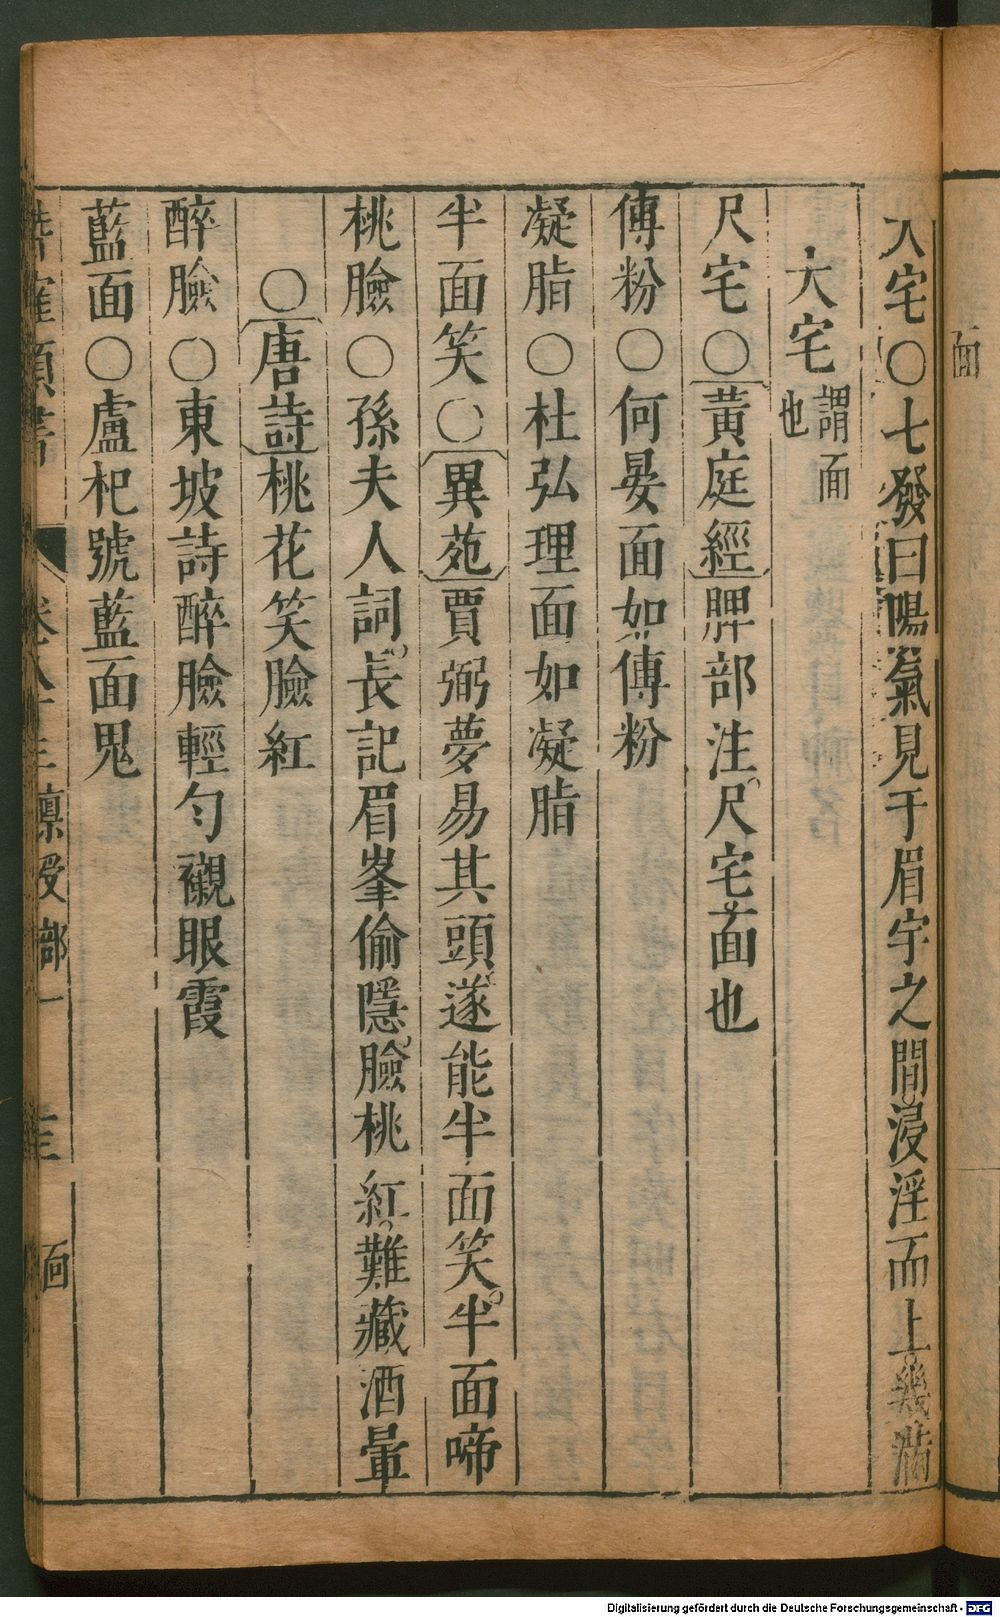 面
大宅○七發曰陽氣見于眉宇之間浸淫而上幾滿
大宅謂面也
尺宅○黃庭經脾部注尺宅面也
傅粉○何晏面如傅粉
凝脂○杜弘理面如凝脂
半面笑○異苑賈弼夢易其頭遂能半面笑半面啼
桃臉○孫夫人詞長記眉峯偷隱臉桃紅難藏酒暈
○唐詩桃花笑臉紅
醉臉○東坡詩醉臉輕勻襯眼霞
藍面○盧杞號藍面鬼
類書 卷 稟受部一 面
Digitalisierung gefördert durch die Deutsche Forschungsgemeinschaft - DFG